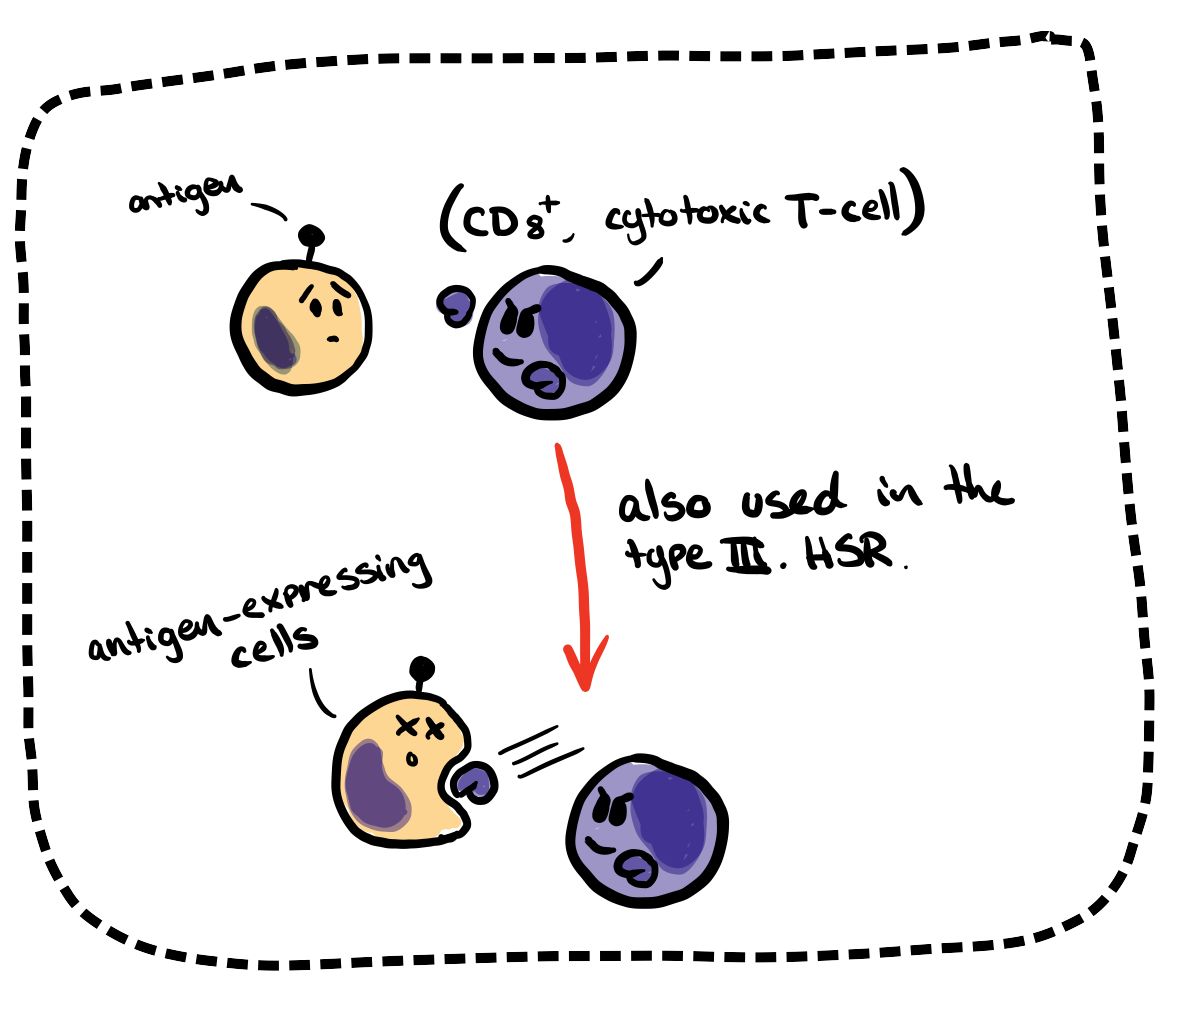 antigen
(CD8⁺, cytotoxic T-cell)
also used in the
type III. HSR.
antigen-expressing
cells